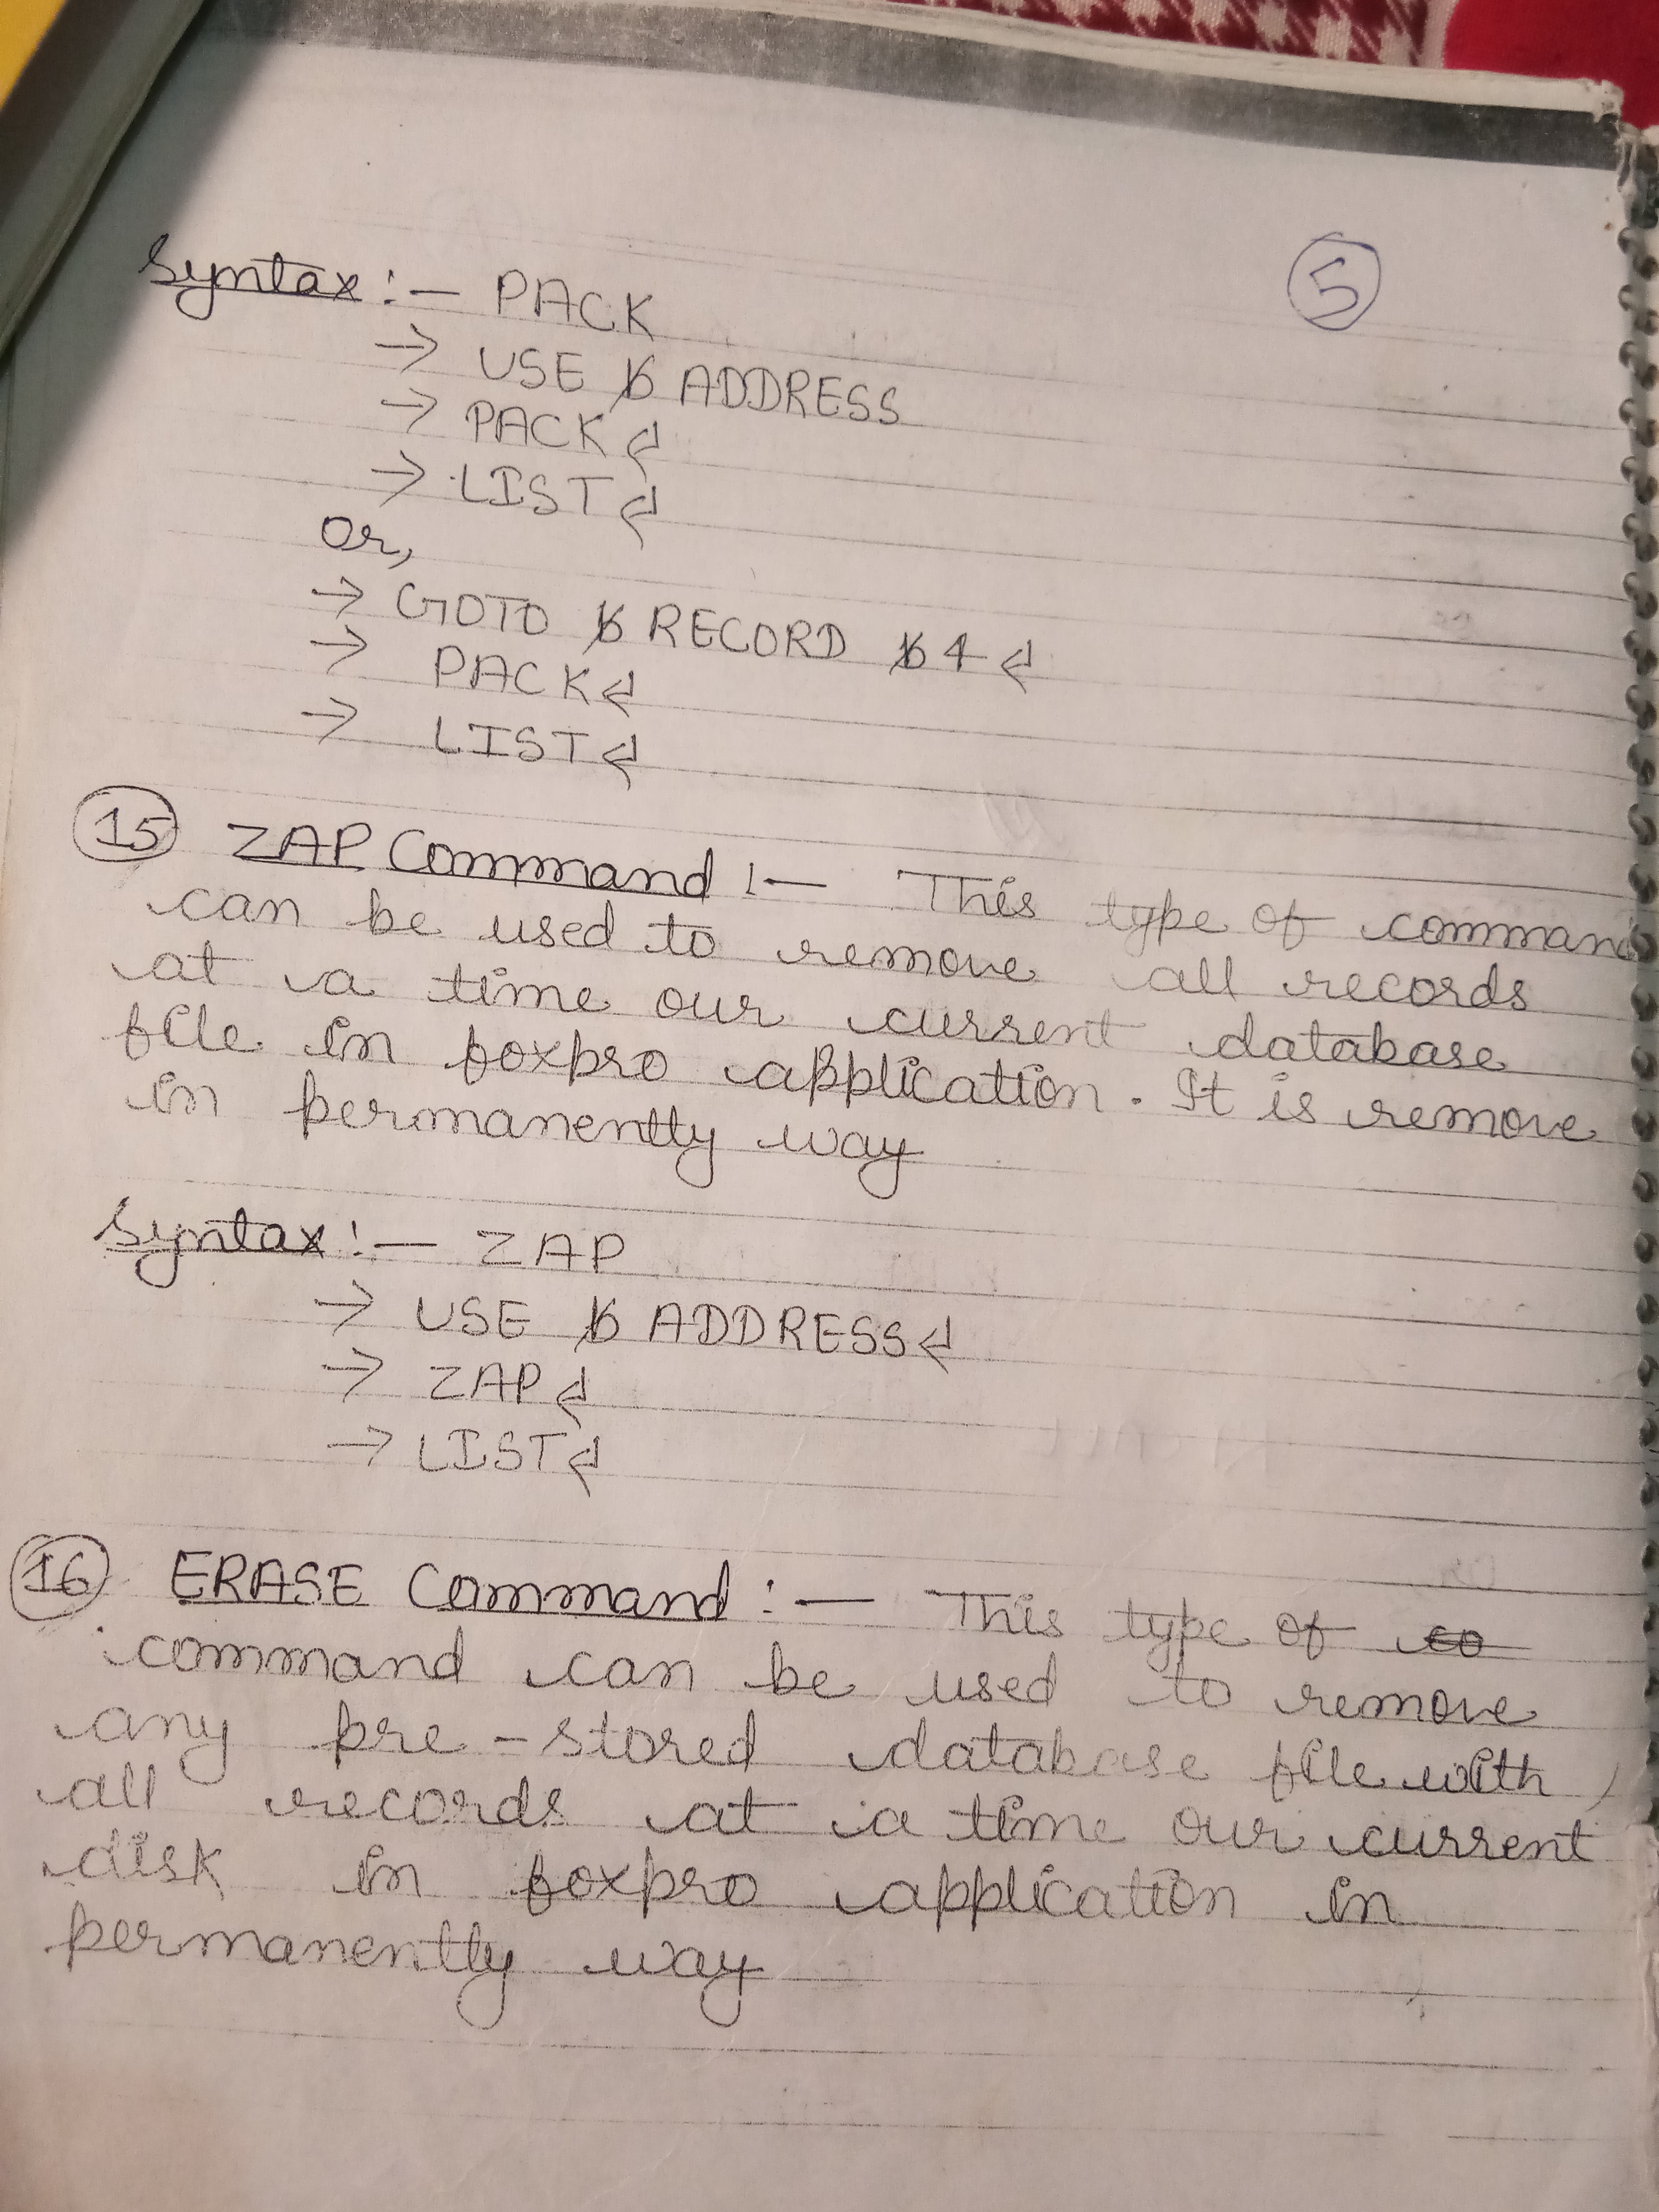 5
Syntax :- PACK
→ USE ␢ ADDRESS
→ PACK ↵
→ LIST ↵
Or,
→ GOTO ␢ RECORD ␢ 4 ↵
→ PACK ↵
→ LIST ↵
15 ZAP Command :- This type of command
can be used to remove all records
at a time our current database
file in foxpro application. It is remove
in permanently way
Syntax :- ZAP
→ USE ␢ ADDRESS ↵
→ ZAP ↵
→ LIST ↵
16 ERASE Command :- This type of co
command can be used to remove
any pre-stored database file with
all records at a time our current
disk in foxpro application in
permanently way